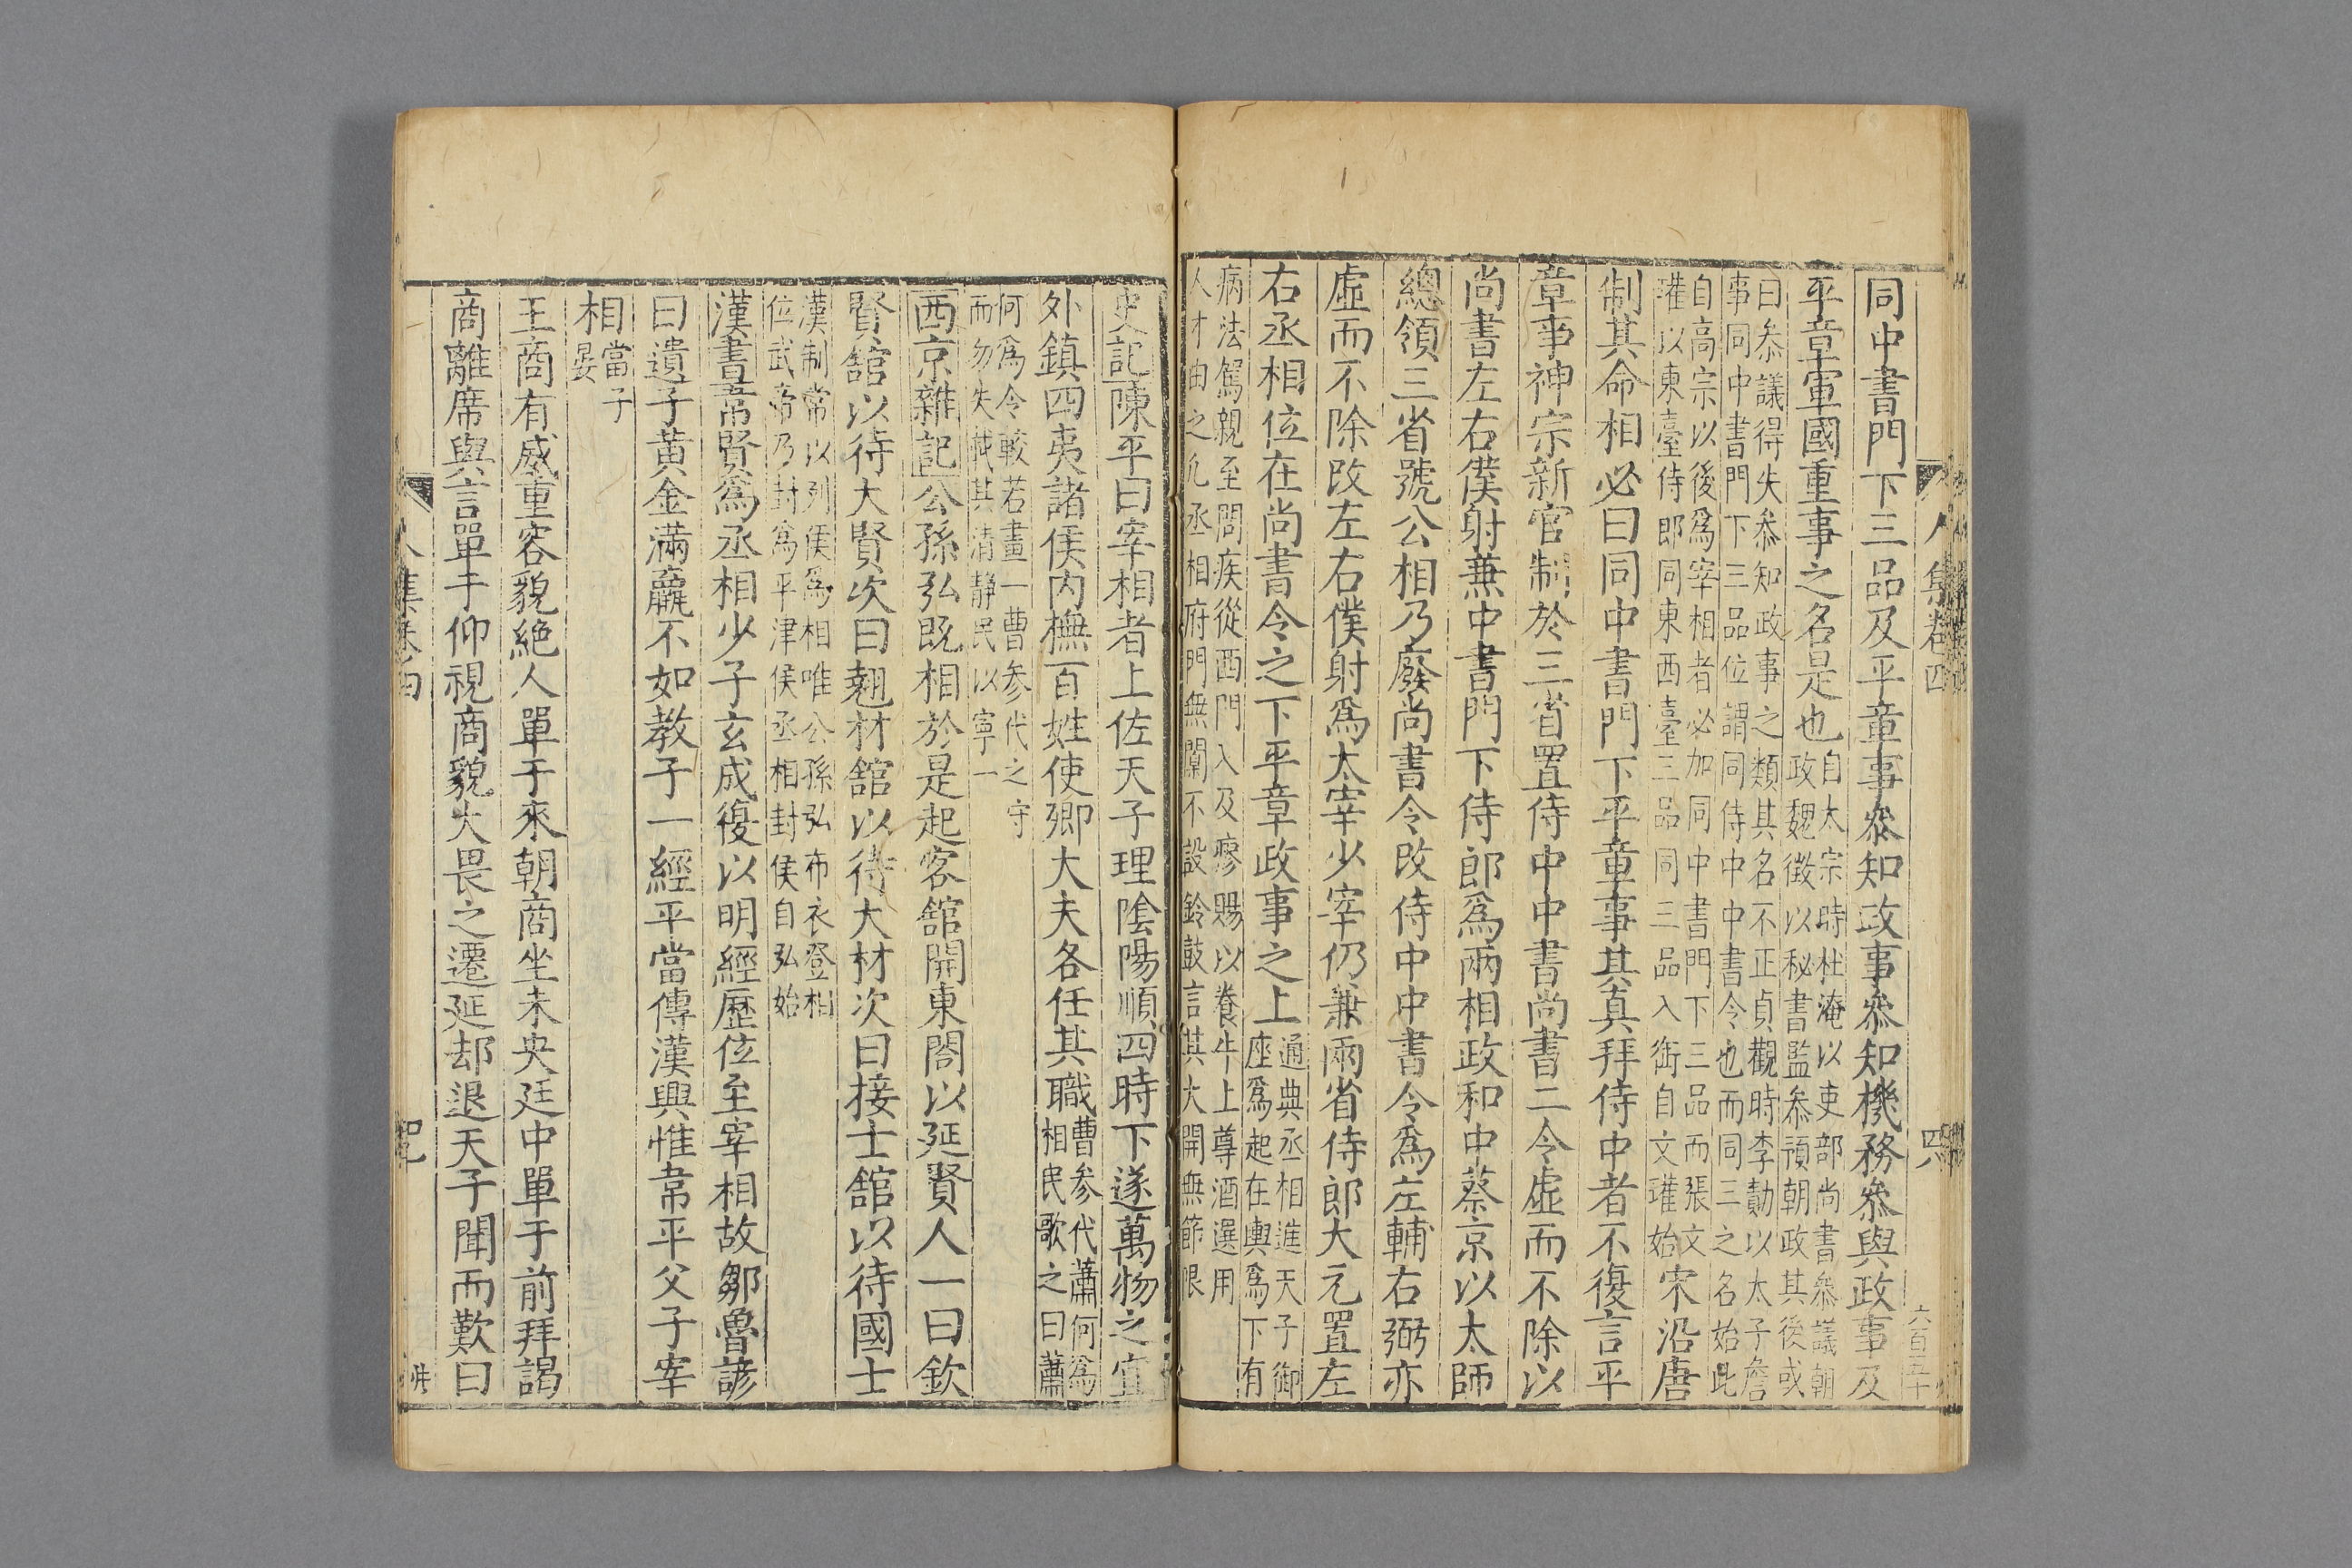 人集卷四
四
六百五十
同中書門下三品及平章事叅知政事叅知機務叅與政事及
平章軍國重事之名是也自太宗時杜淹以吏部尚書叅議朝
政魏徵以秘書監叅預朝政其後或
曰叅議得失叅知政事之類其名不正貞觀時李勣以太子詹
事同中書門下三品位謂同侍中中書令也而同三之名始此
自高宗以後爲宰相者必加同中書門下三品而張文
瓘以東臺侍郎同東西臺三品同三品入銜自文瓘始宋沿唐
制其命相必曰同中書門下平章事其真拜侍中者不復言平
章事神宗新官制於三省置侍中中書尚書二令虛而不除以
尚書左右僕射兼中書門下侍郎爲兩相政和中蔡京以太師
總領三省號公相乃廢尚書令改侍中中書令爲左輔右弼亦
虛而不除改左右僕射爲太宰少宰仍兼兩省侍郎大元置左
右丞相位在尚書令之下平章政事之上通典丞相進天子御
座爲起在輿爲下有
病法駕親至問疾從西門入及瘳賜以養牛上尊酒選用
人才由之凡丞相府門無闌不設鈴鼓言其大開無節限
史記陳平曰宰相者上佐天子理陰陽順四時下遂萬物之宜
外鎮四夷諸侯內撫百姓使卿大夫各任其職曹参代蕭何爲
相民歌之曰蕭
何爲令較若畫一曹参代之守
而勿失載其清靜民以寧一
西京雜記公孫弘既相於是起客舘開東閤以延賢人一曰欽
賢舘以待大賢次曰翹材舘以待大材次曰接士舘以待國士
漢制常以列侯爲相唯公孫弘布衣登相
位武帝乃封爲平津侯丞相封侯自弘始
漢書韋賢爲丞相少子玄成復以明經歷位至宰相故鄒魯諺
曰遺子黃金滿籯不如教子一經平當傳漢興惟韋平父子宰
相當子
晏
王商有威重容貌絕人單于來朝商坐未央廷中單于前拜謁
商離席與言單于仰視商貌大畏之遷延却退天子聞而歎曰